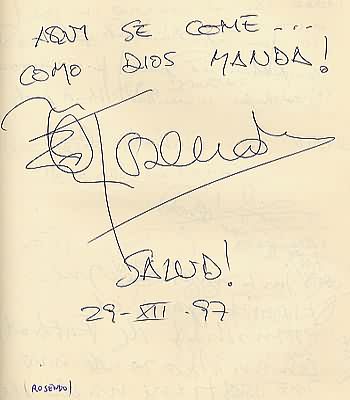 AQUI SE COME....
COMO DIOS MANDA!
Rosendo
SALUD!
29-XII-97
(ROSENDO)